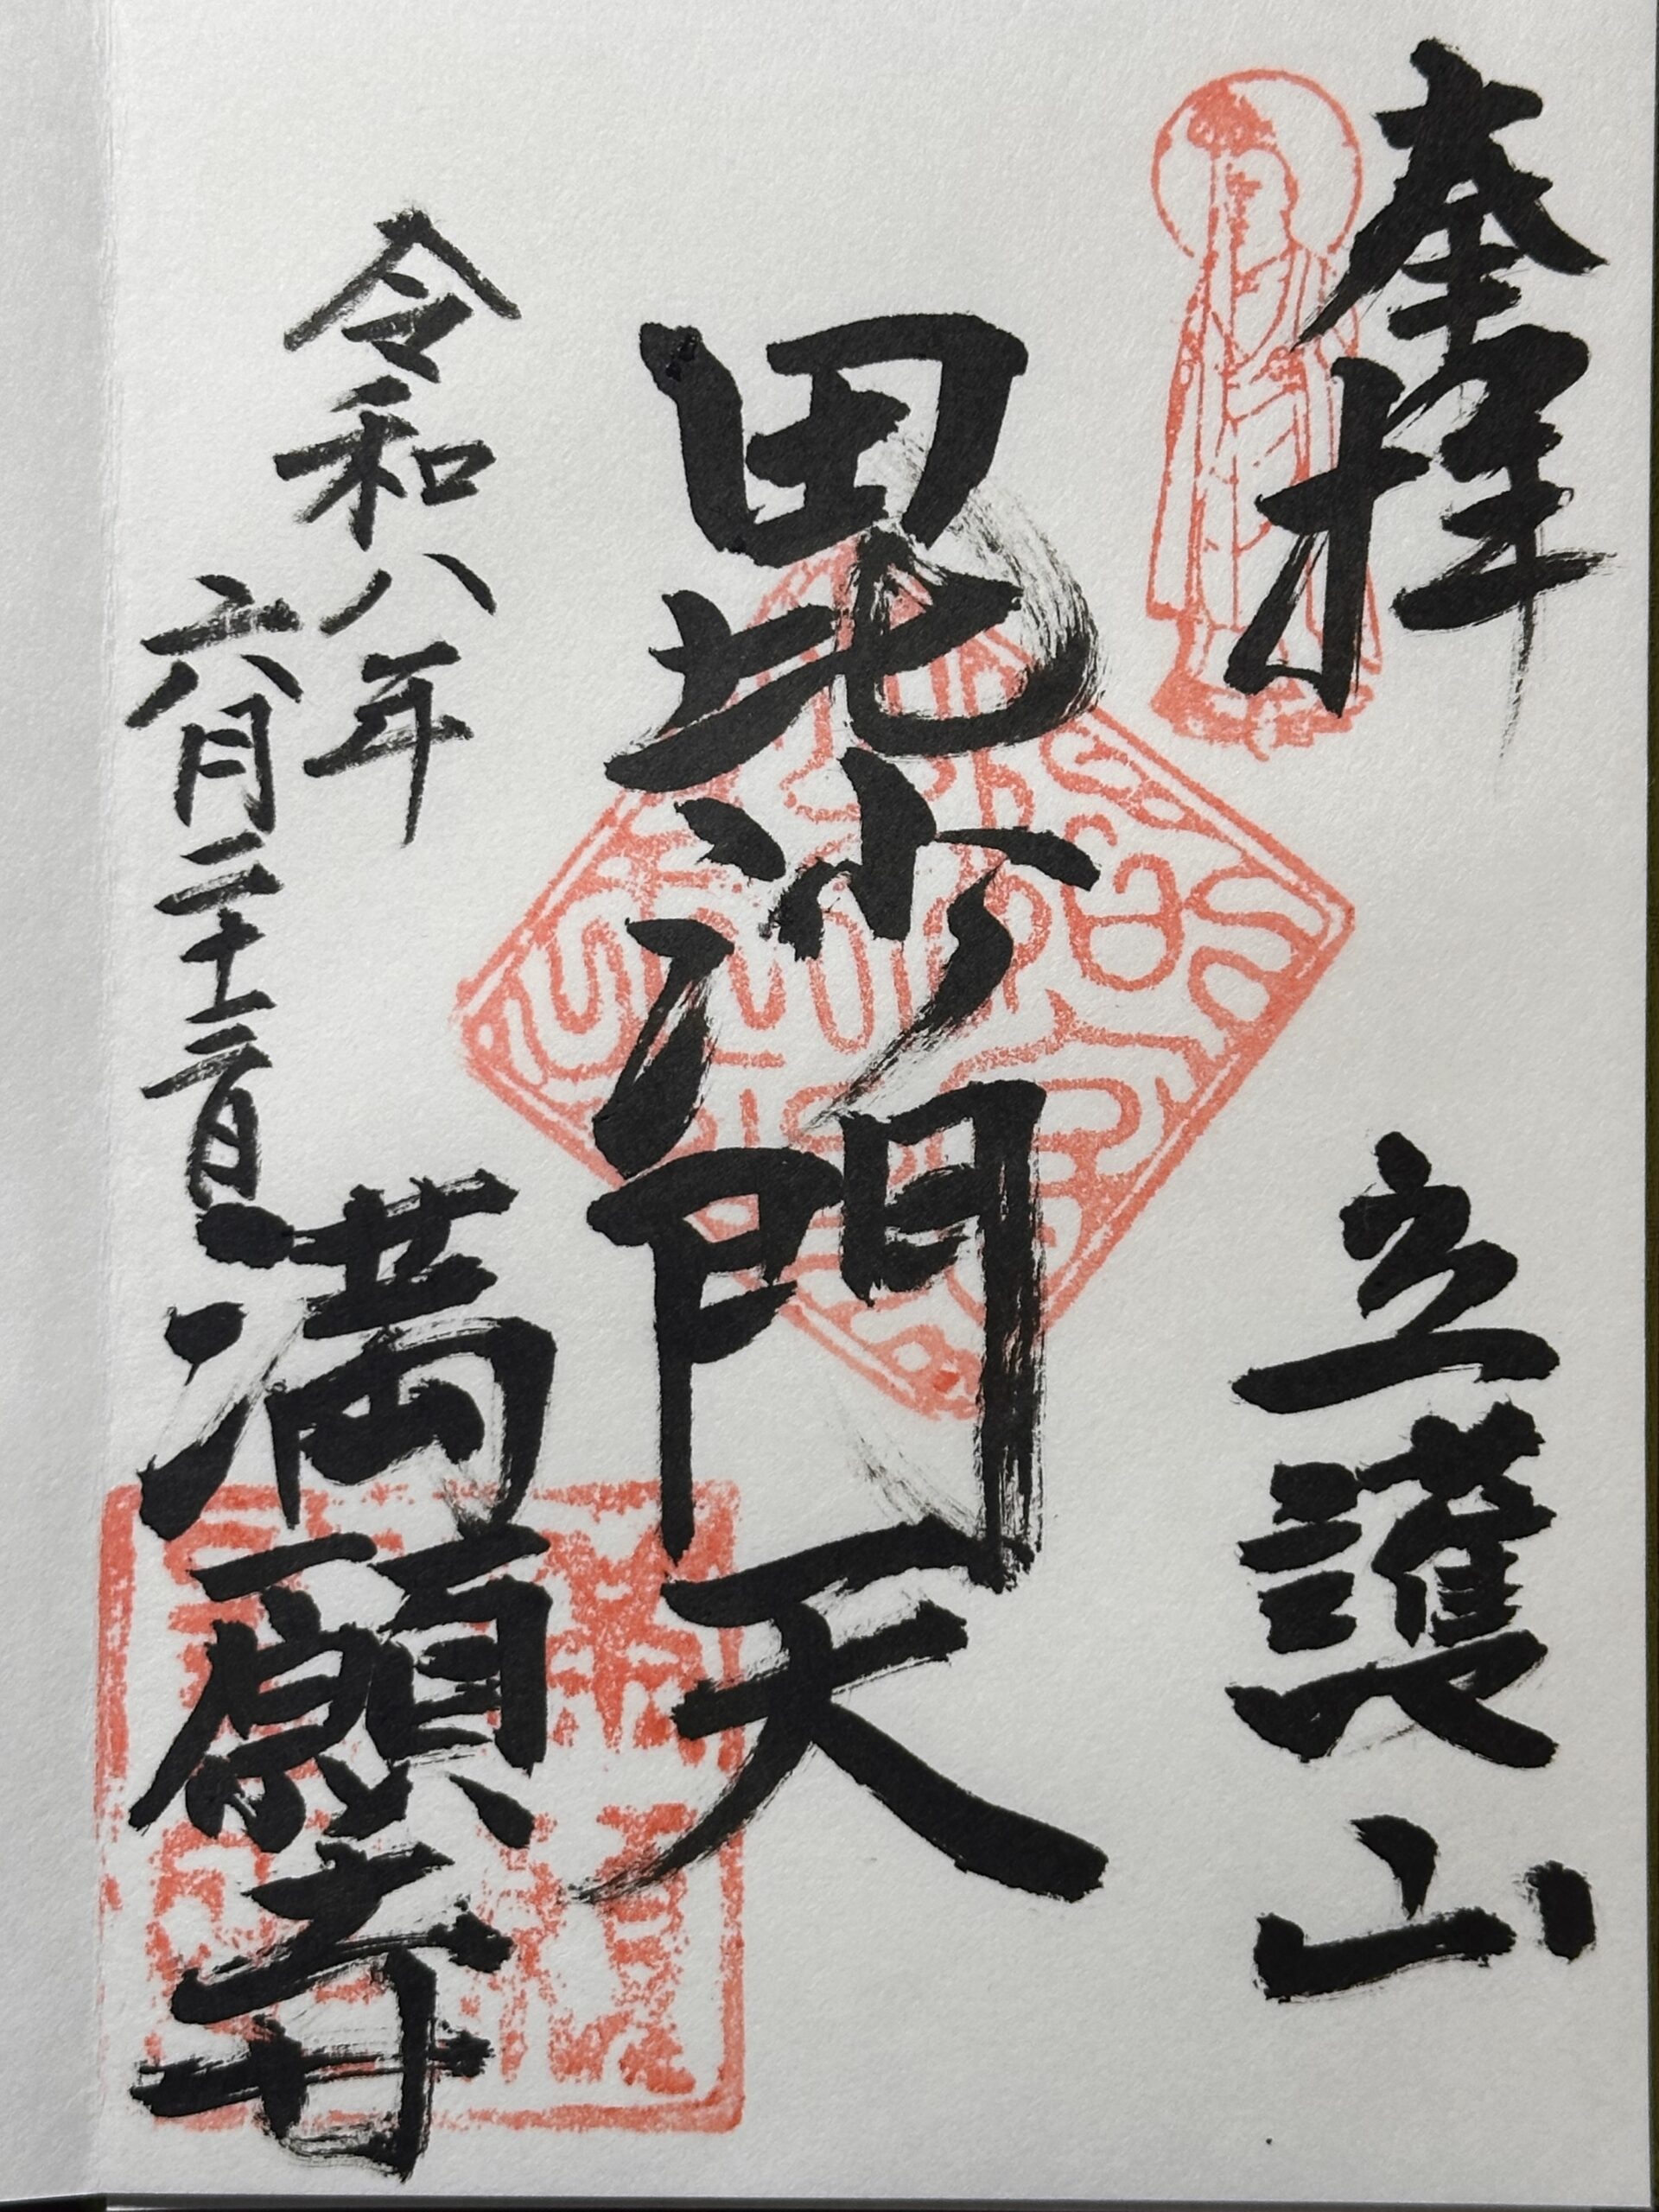 奉拝　立護山
毘沙門天
令和八年
六月二十三日
満願寺